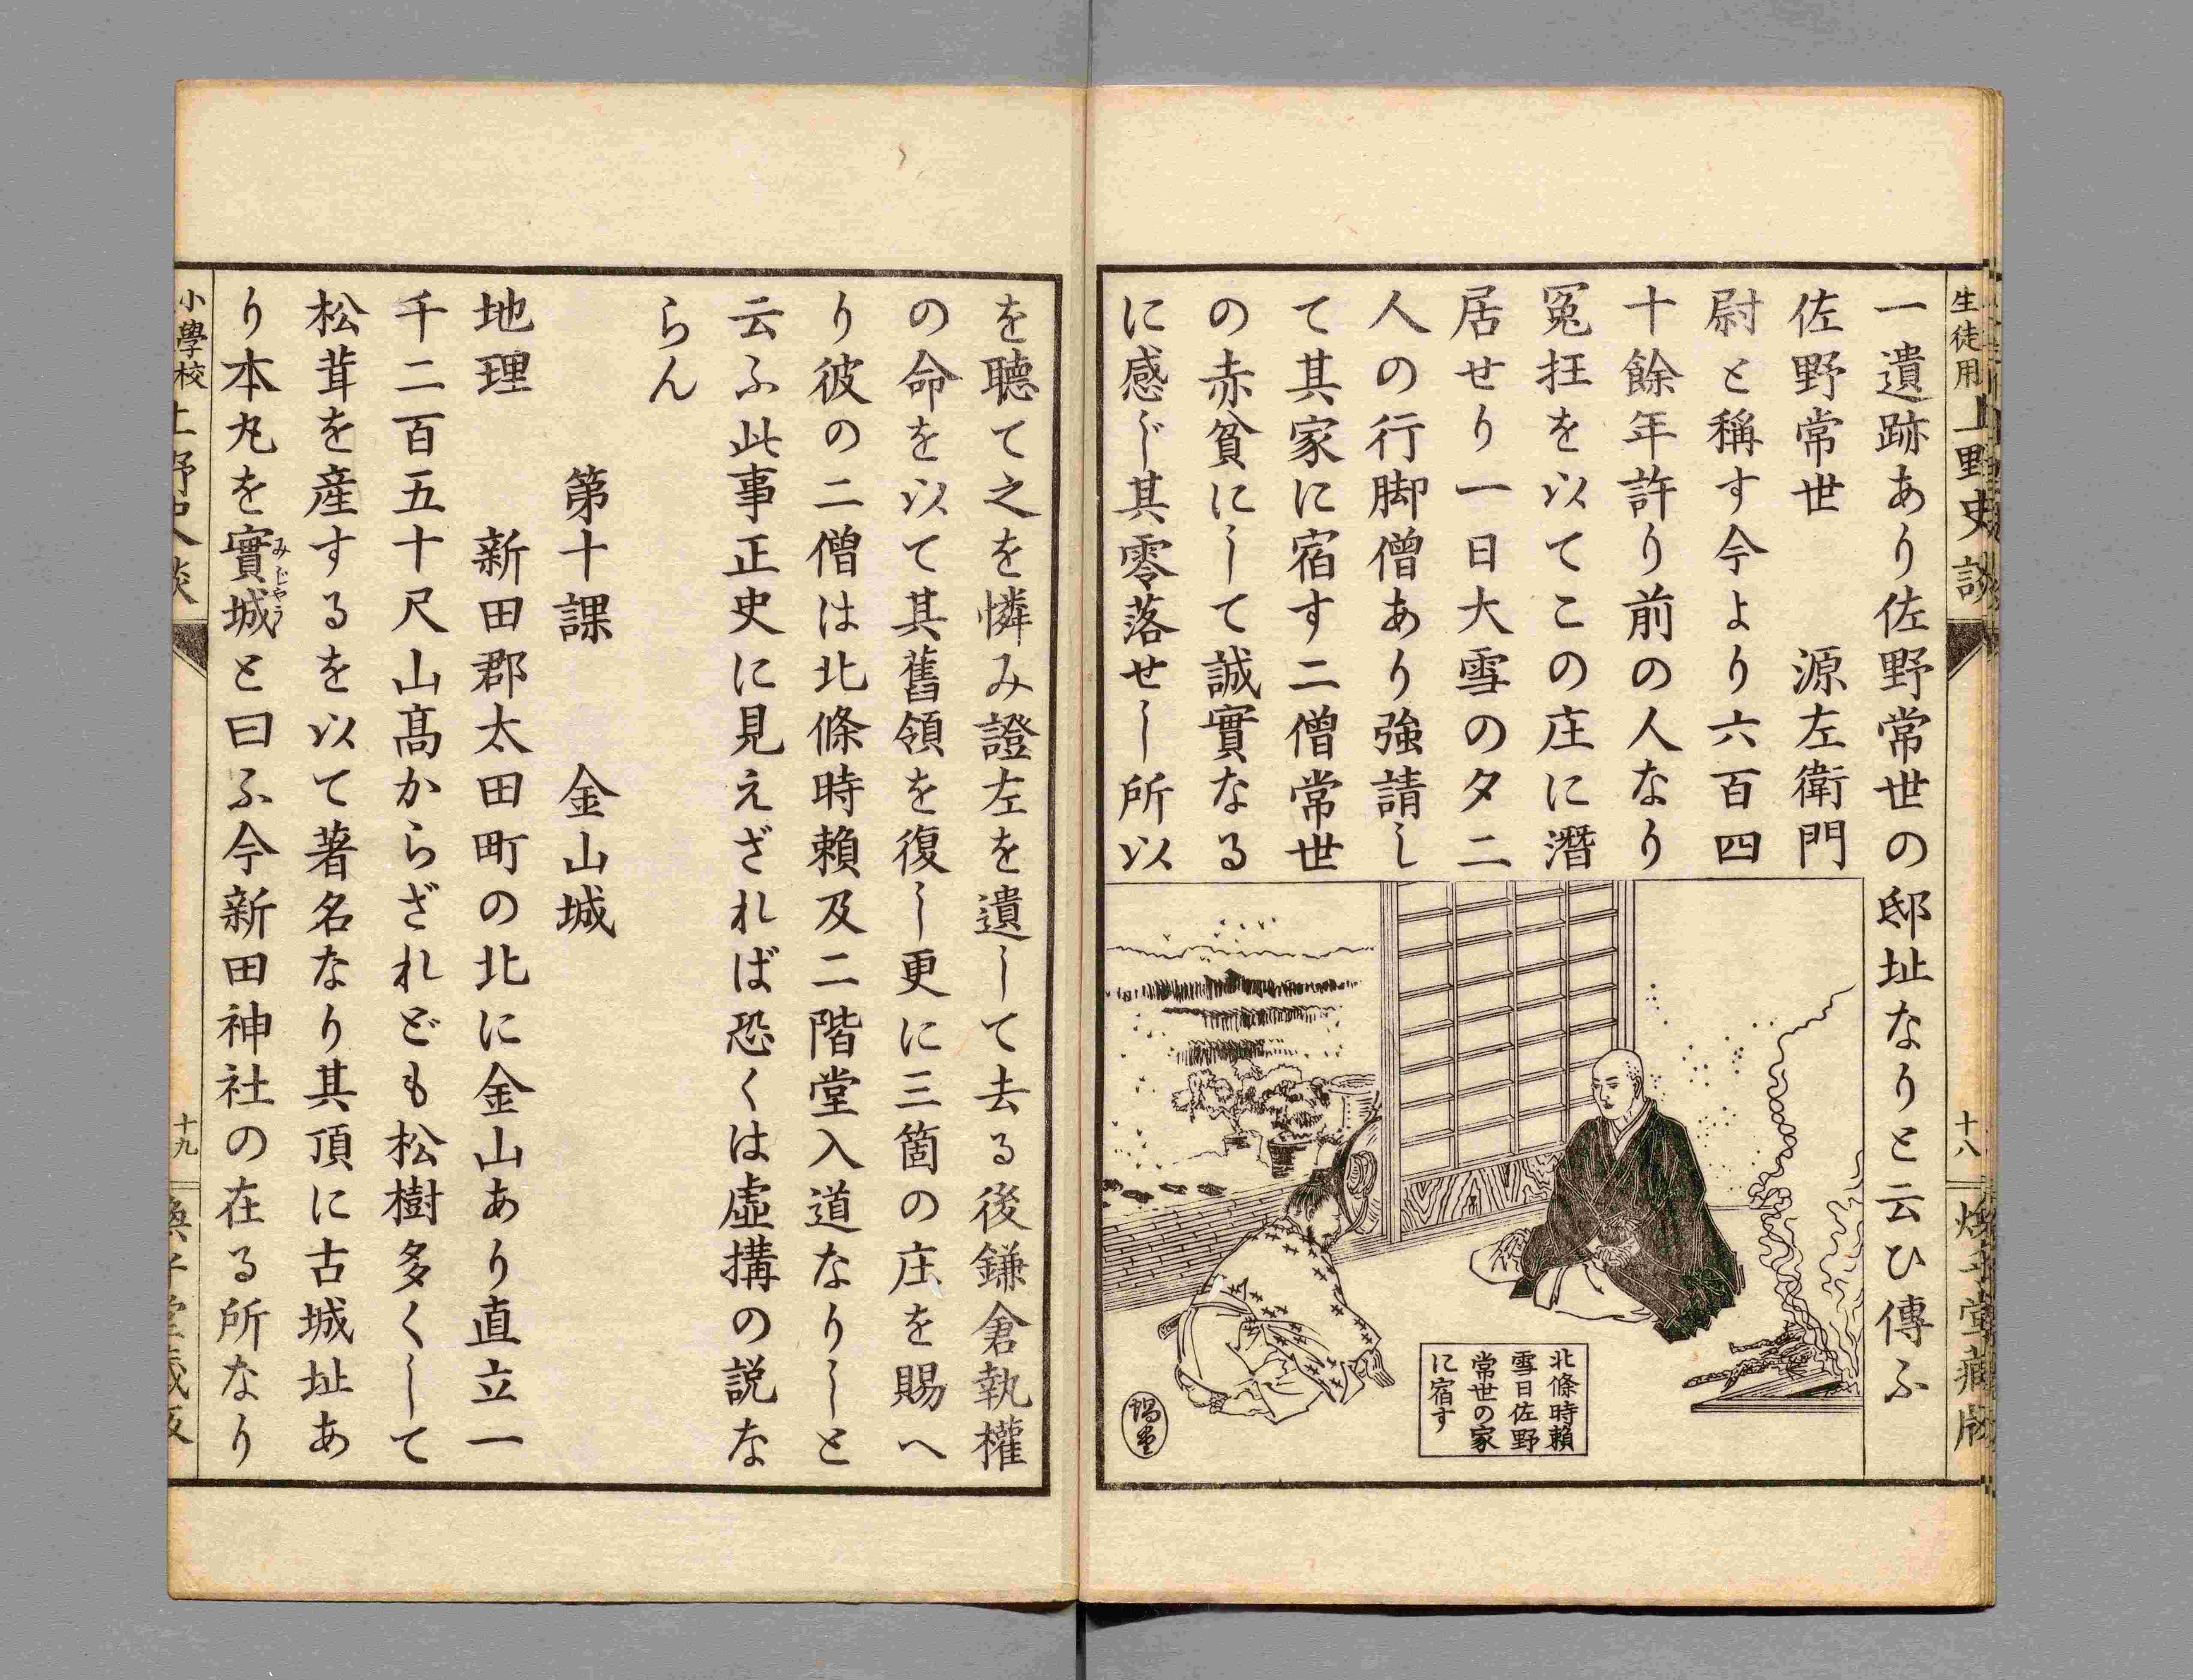 生徒用上野史談
十八
一遺跡あり佐野常世の邸址なりと云ひ傳ふ
佐野常世　源左衛門
尉と稱す今より六百四
十餘年許り前の人なり
冤枉を以てこの庄に潛
居せり一日大雪の夕二
人の行脚僧あり強請し
て其家に宿す二僧常世
の赤貧にして誠實なる
に感じ其零落せし所以
北條時賴
雪日佐野
常世の家
に宿す
を聽て之を憐み證左を遺して去る後鎌倉執權
の命を以て其舊領を復し更に三箇の庄を賜へ
り彼の二僧は北條時賴及二階堂入道なりしと
云ふ此事正史に見えざれば恐くは虛搆の説な
らん
第十課　金山城
地理　新田郡太田町の北に金山あり直立一
千二百五十尺山髙からざれども松樹多くして
松茸を産するを以て著名なり其頂に古城址あ
り本丸を實城と曰ふ今新田神社の在る所なり
みじやう
小學校
十九